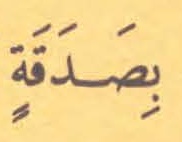 بِصَـدَقَةٍ